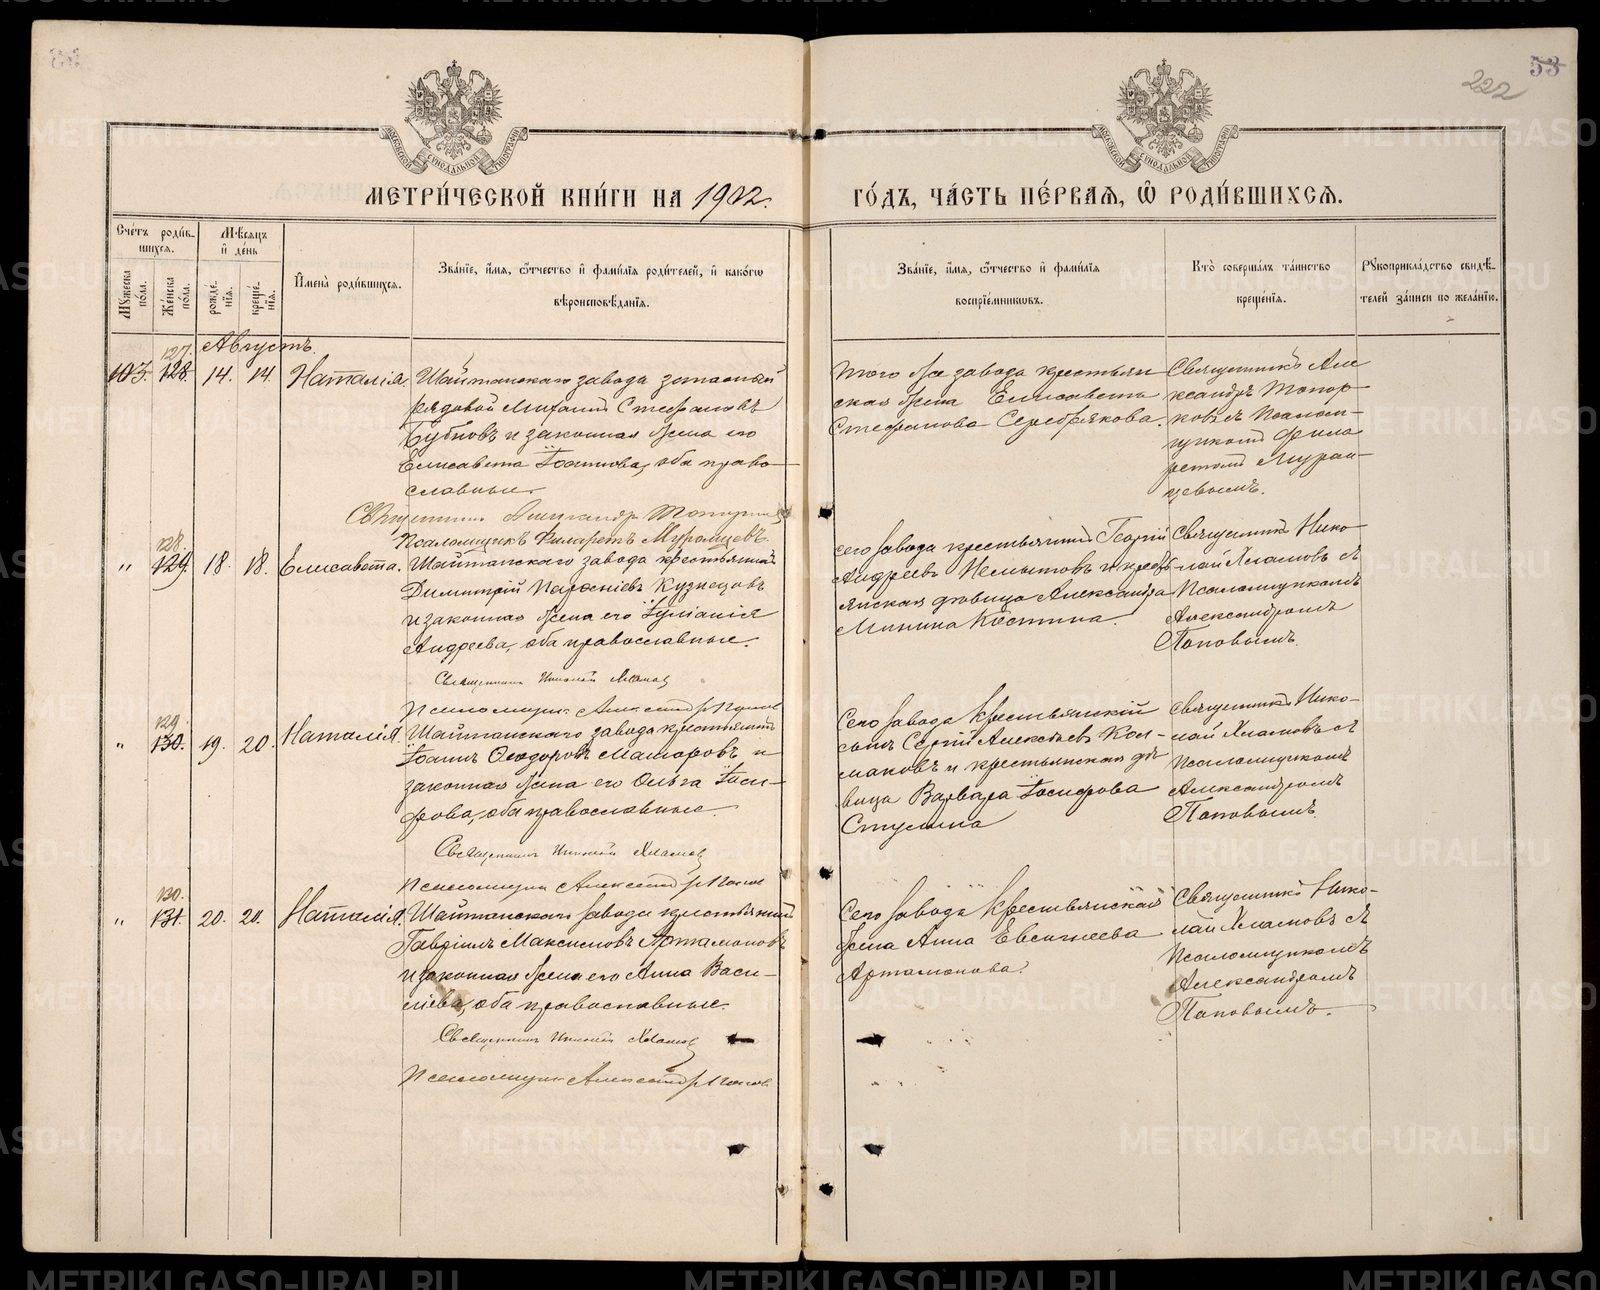 53
222
МОСКОВСКОЙ СѴНОДАЛЬНОЙ ТИПОГРАФІИ
МОСКОВСКОЙ СѴНОДАЛЬНОЙ ТИПОГРАФІИ
МЕТРИ́ЧЕСКОЙ КНИ́ГИ НА 1902.
ГО́ДЪ, ЧА́СТЬ ПЕ́РВАѦ, Ѡ҆ РОДИ́ВШИХСѦ.
Сче́тъ роди́в-
шихся.
Мꙋ́жеска по́ла.
Же́нска по́ла.
Мѣ́сяцъ и҆ де́нь
рожде́нїя.
креще́нїя.
И҆мена̀ роди́вшихся.
Зва́нїе, и҆́мя, ѻ҆́тчество и҆ фами́лїя роди́телей, и҆ како́гѡ
вѣроисповѣ́данїя.
Зва́нїе, и҆́мя, ѻ҆́тчество и҆ фами́лїя
воспрїе́мникѡвъ.
Кто̀ соверша́лъ та́инство
креще́нїя.
Рꙋкоприкла́дство свидѣ́-
телей за́писи по жела́нїю.
Августъ.
127.
103. 128. 14. 14. Наталія,
Шайтанскаго завода запасный
рядовой Михаилъ Стефановъ
Бубновъ и законная жена его
Елисавета Іоаннова, оба право-
славные.
Священникъ Александръ Топорковъ
Псаломщикъ Филаретъ Муромцевъ.
Того же завода крестьян-
ская жена Елисавета
Стефанова Серебрякова.
Священникъ Але
ксандръ Топор-
ковъ съ Псалом-
щикомъ Фила
ретомъ Муром-
цевымъ.
128.
" 129. 18. 18. Елисавета.
Шайтанскаго завода крестьянинъ
Димитрій Парѳеніевъ Кузнецовъ
и законная жена его Іуліанія
Андреева, оба православные.
Священникъ Николай Хламовъ
Псаломщикъ Александръ Поповъ
сего завода крестьянинъ Георгій
Андреевъ и крест
янская дѣвица Александра
Минина Костина.
Священникъ Нико-
лай Хламовъ съ
Псаломщикомъ
Александромъ
Поповымъ.
129.
" 130. 19. 20. Наталія.
Шайтанскаго завода крестьянинъ
Іоаннъ Ѳеодоровъ и
законная жена его Ольга Іоси-
фова, оба православные.
Священникъ Николай Хламовъ
Псаломщикъ Александръ Поповъ
Сего завода Крестьянскій
сынъ Сергій Алексѣевъ Кол-
маковъ и крестьянская дѣ
вица Варвара Іосифова
Ступина
Священникъ Нико-
лай Хламовъ съ
Псаломщикомъ
Александромъ
Поповымъ.
130.
" 131. 20. 20. Наталія.
Шайтанскаго завода крестьянинъ
Гавріилъ Максимовъ Артамоновъ
и законная жена его Анна Васи-
ліева, оба православные.
Священникъ Николай Хламовъ
Псаломщикъ Александръ Поповъ
Сего завода Крестьянская
жена Анна Евсигнеева
Артамонова.
Священникъ Нико-
лай Хламовъ съ
Псаломщикомъ
Александромъ
Поповымъ.
METRIKI.GASO-URAL.RU